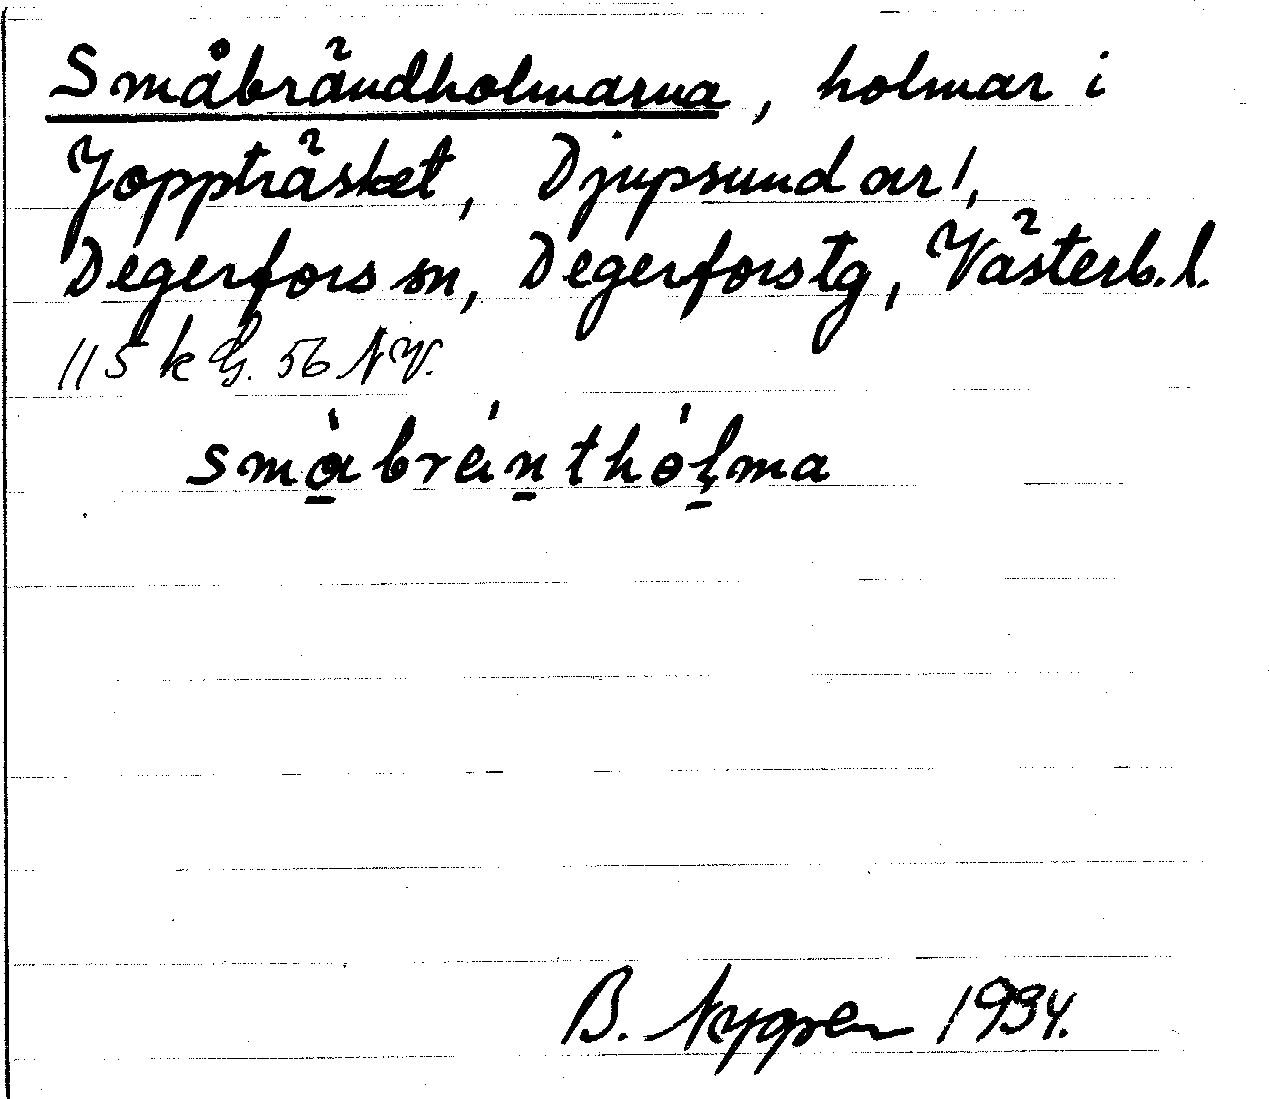 Småbrändholmarna, holmar i
Joppträsket, Djupsund ar!,
Degerfors sn, Degerforstg, Västerb. l.
115 k G. 56 NV.
småbräntholma
B. Nygren 1934.